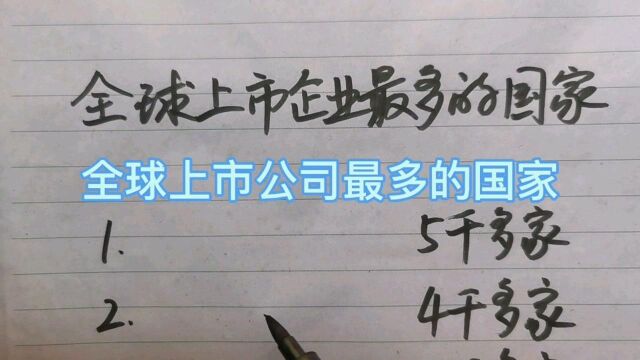 全球上市企业最多的国家
全球上市公司最多的国家
1. 5千多家
2. 4千多家